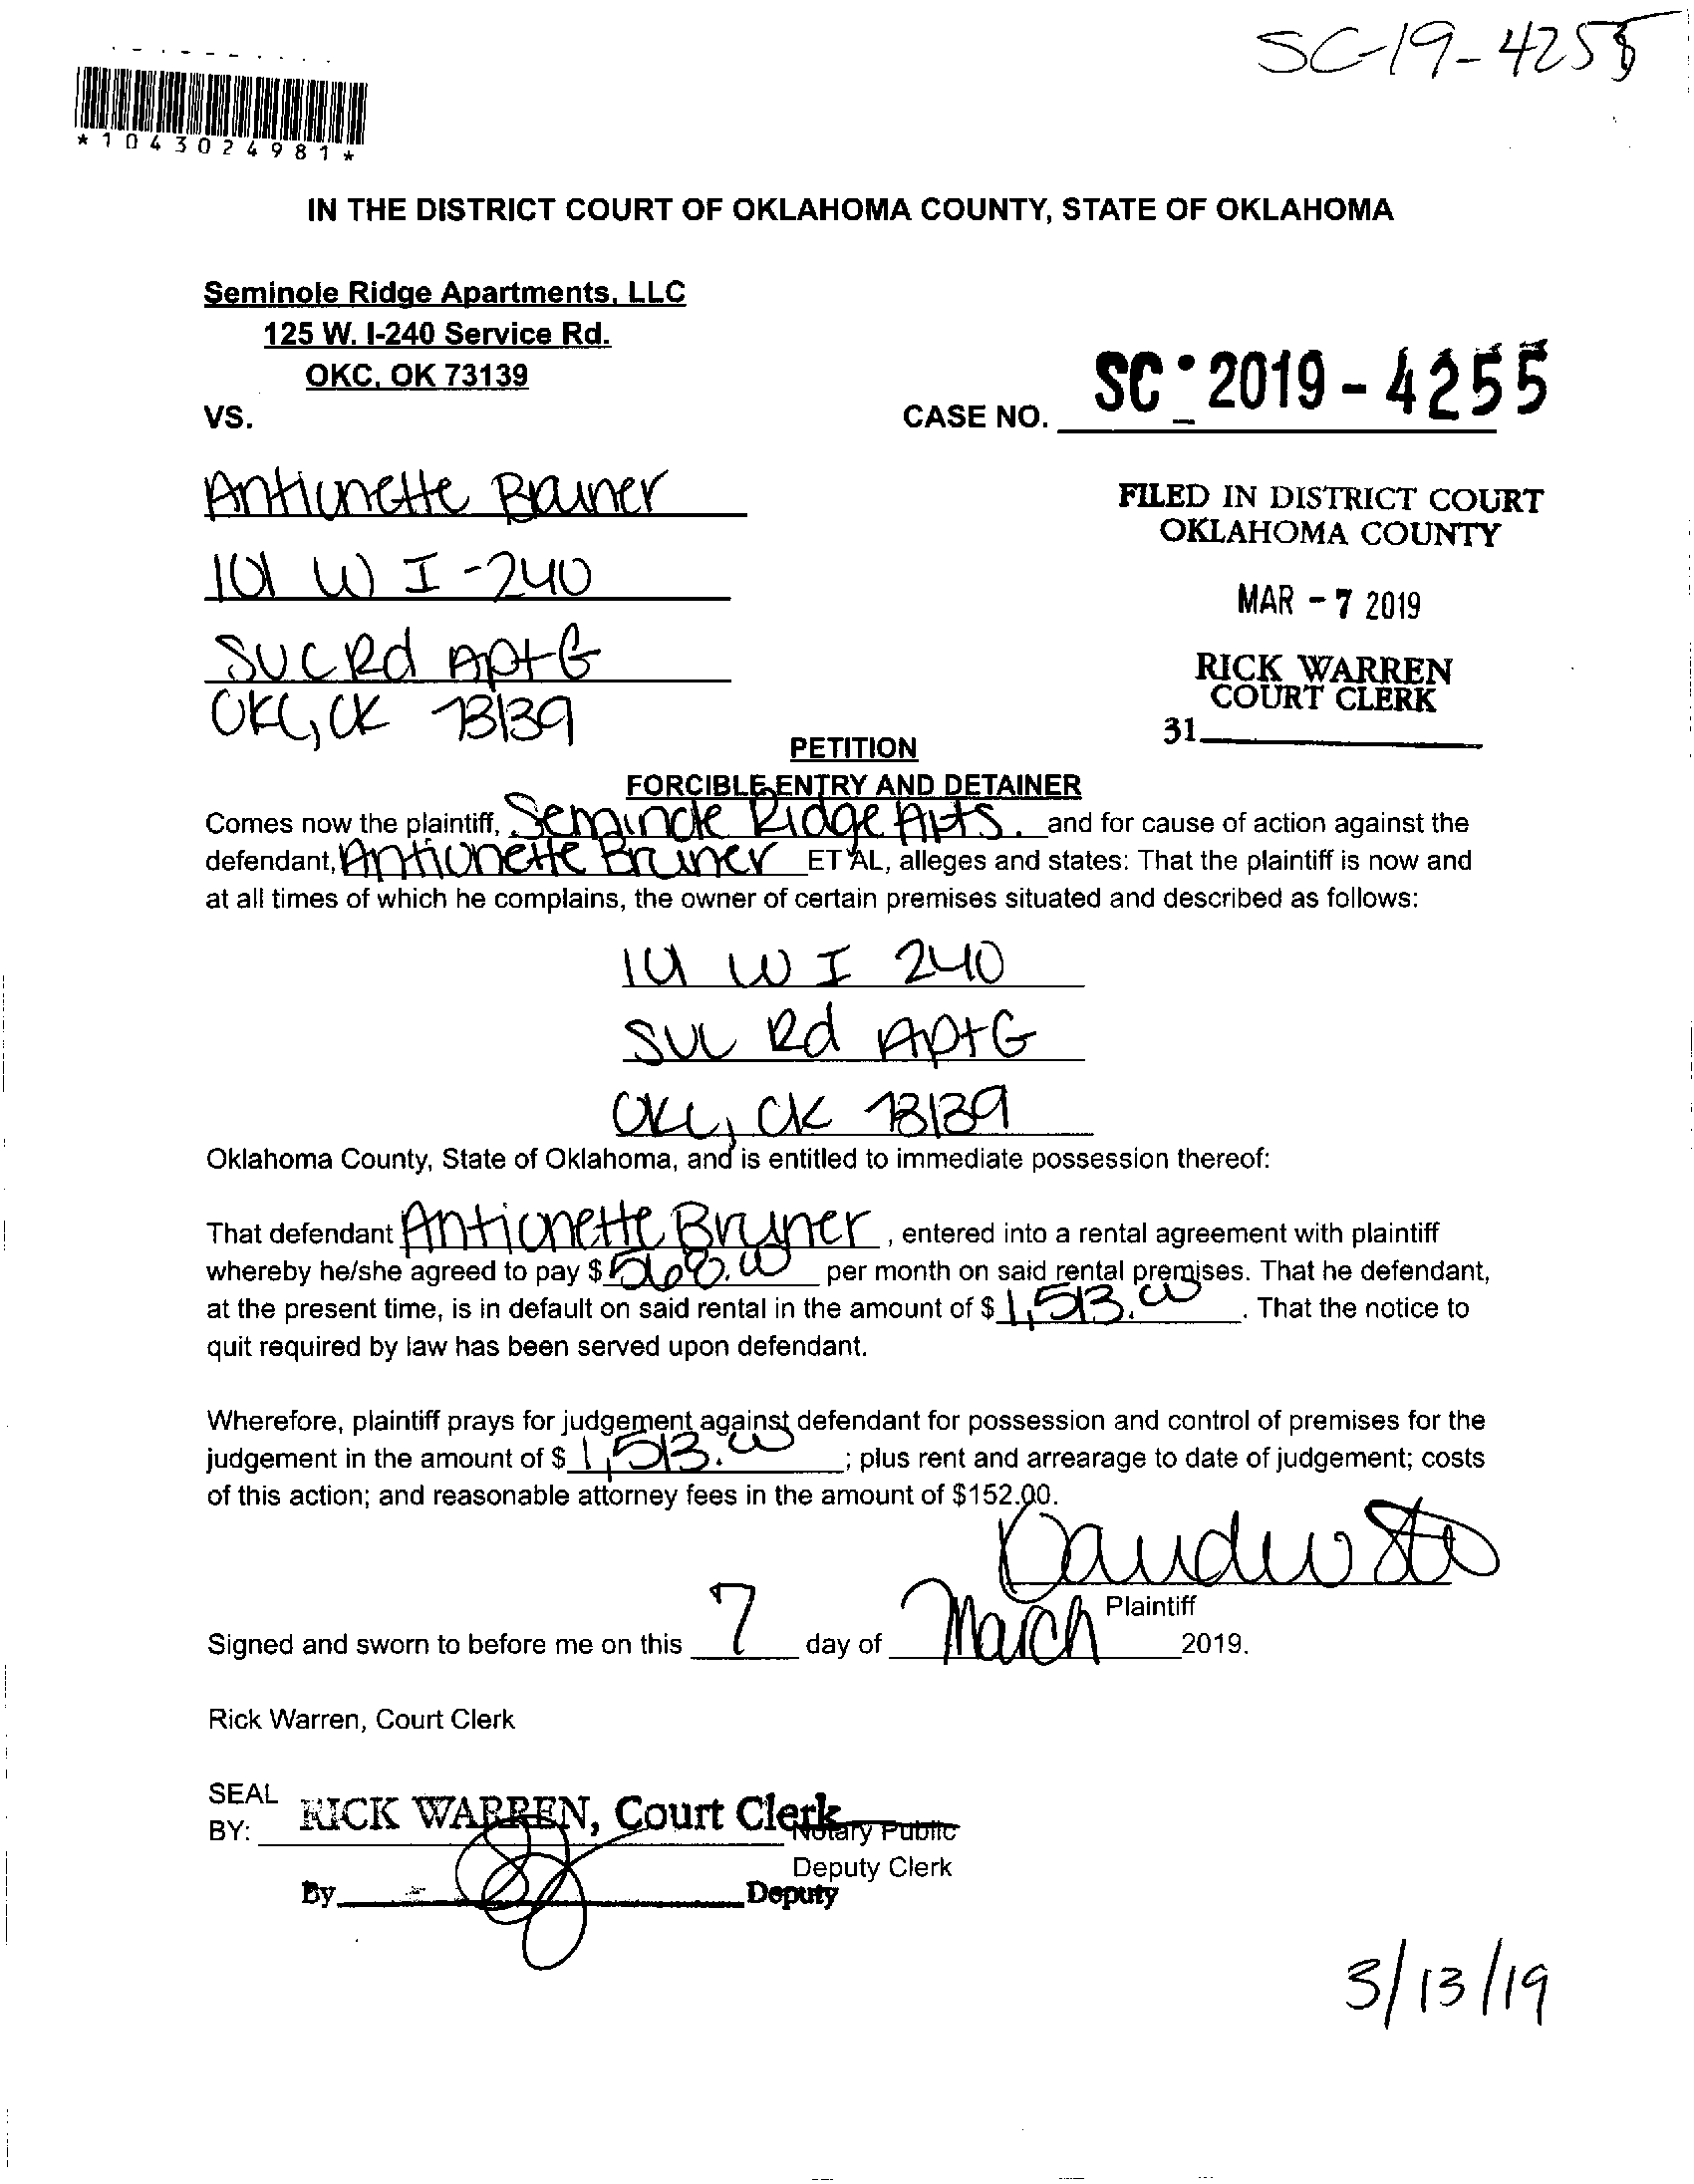 SC-19-4255
*1043024981*
IN THE DISTRICT COURT OF OKLAHOMA COUNTY, STATE OF OKLAHOMA
Seminole Ridge Apartments, LLC
125 W. I-240 Service Rd.
OKC, OK 73139
VS.
CASE NO. SC-2019-4255
Antionette Bruner
101 W I-240
SVC Rd Apt G
OKC, OK 73139
FILED IN DISTRICT COURT
OKLAHOMA COUNTY
MAR - 7 2019
RICK WARREN
COURT CLERK
31
PETITION
FORCIBLE ENTRY AND DETAINER
Comes now the plaintiff, Seminole Ridge Apts. and for cause of action against the
defendant, Antionette Bruner ET AL, alleges and states: That the plaintiff is now and
at all times of which he complains, the owner of certain premises situated and described as follows:
101 W I 240
SVC Rd Apt G
OKC, OK 73139
Oklahoma County, State of Oklahoma, and is entitled to immediate possession thereof:
That defendant Antionette Bruner, entered into a rental agreement with plaintiff
whereby he/she agreed to pay $ 568.00 per month on said rental premises. That he defendant,
at the present time, is in default on said rental in the amount of $ 1,513.00. That the notice to
quit required by law has been served upon defendant.
Wherefore, plaintiff prays for judgement against defendant for possession and control of premises for the
judgement in the amount of $ 1,513.00; plus rent and arrearage to date of judgement; costs
of this action; and reasonable attorney fees in the amount of $152.00.
Plaintiff
Signed and sworn to before me on this 7 day of March 2019.
Rick Warren, Court Clerk
SEAL
BY: RICK WARREN, Court Clerk
Notary Public
Deputy Clerk
By Deputy
3/13/19